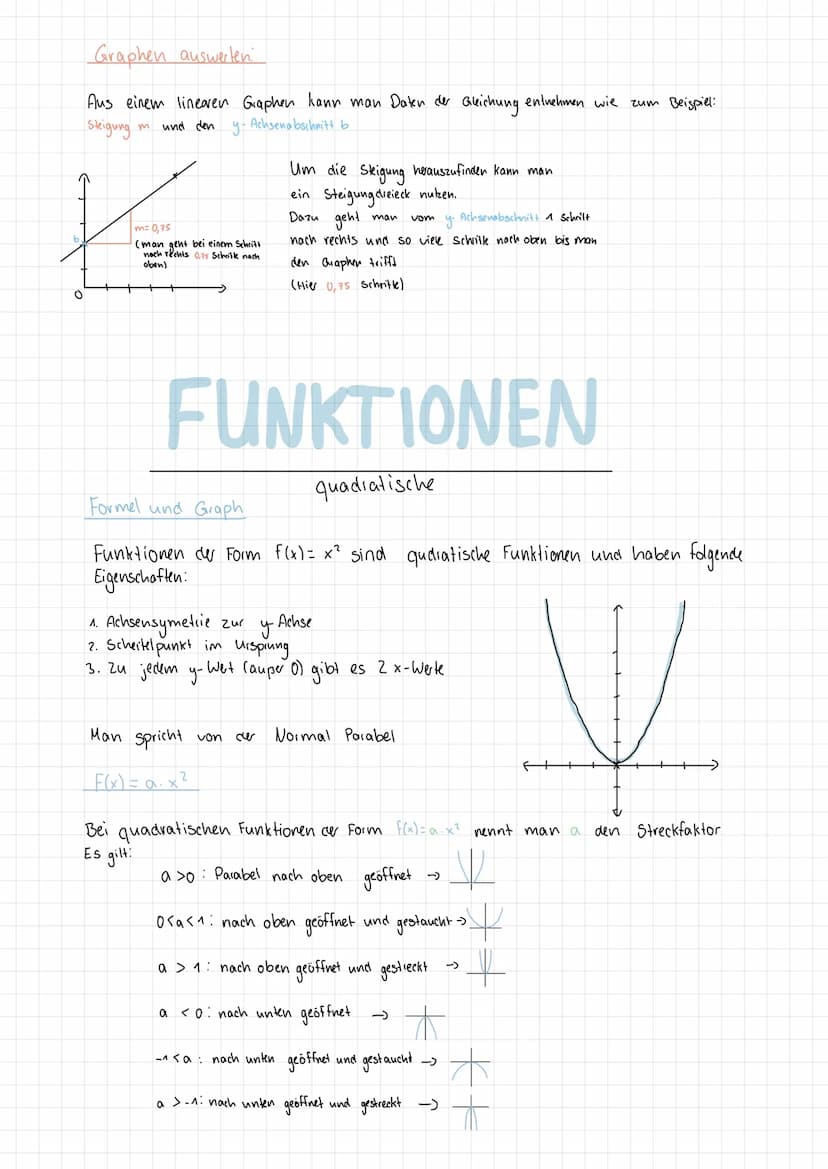 Graphen auswerten:
Aus einem linearen Graphen kann man Daten der Gleichung entnehmen wie zum Beispiel:
Steigung m und den y-Achsenabschnitt b
Um die Steigung herauszufinden kann man
ein Steigungdreieck nutzen.
Dazu geht man vom y-Achsenabschnitt 1 Schritt
nach rechts und so viele Schritte nach oben bis man
den Graphen trifft
(Hier 0,75 Schritte)
b
m=0,75
(man geht bei einem Schritt
nach rechts 0,75 Schritte nach
oben)
0
FUNKTIONEN
quadratische
Formel und Graph
Funktionen der Form f(x)= x² sind qudratische Funktionen und haben folgende
Eigenschaften:
1. Achsensymetrie zur y-Achse
2. Scheitelpunkt im Ursprung
3. Zu jedem y-Wet (außer 0) gibt es 2 x-Werte
Man spricht von der Normal Parabel
F(x) = a · x²
Bei quadratischen Funktionen der Form f(x)=a·x² nennt man a den Streckfaktor
Es gilt:
a >0 : Parabel nach oben geöffnet →
0<a<1: nach oben geöffnet und gestaucht →
a > 1: nach oben geöffnet und gestreckt →
a < 0: nach unten geöffnet →
-1<a : nach unten geöffnet und gestaucht →
a >-1: nach unten geöffnet und gestreckt →